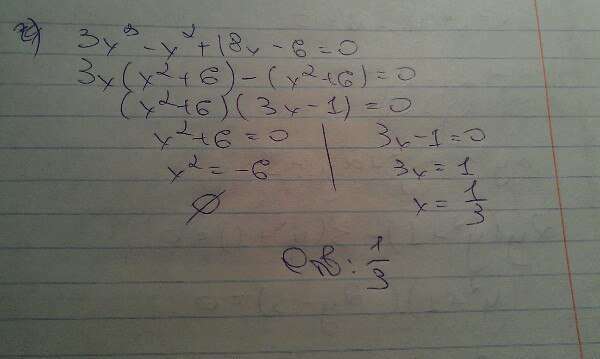 ж) 3x³ - x² + 18x - 6 = 0
3x(x² + 6) - (x² + 6) = 0
(x² + 6)(3x - 1) = 0
x² + 6 = 0 | 3x - 1 = 0
x² = -6 | 3x = 1
∅ x = 1/3
Отв: 1/3